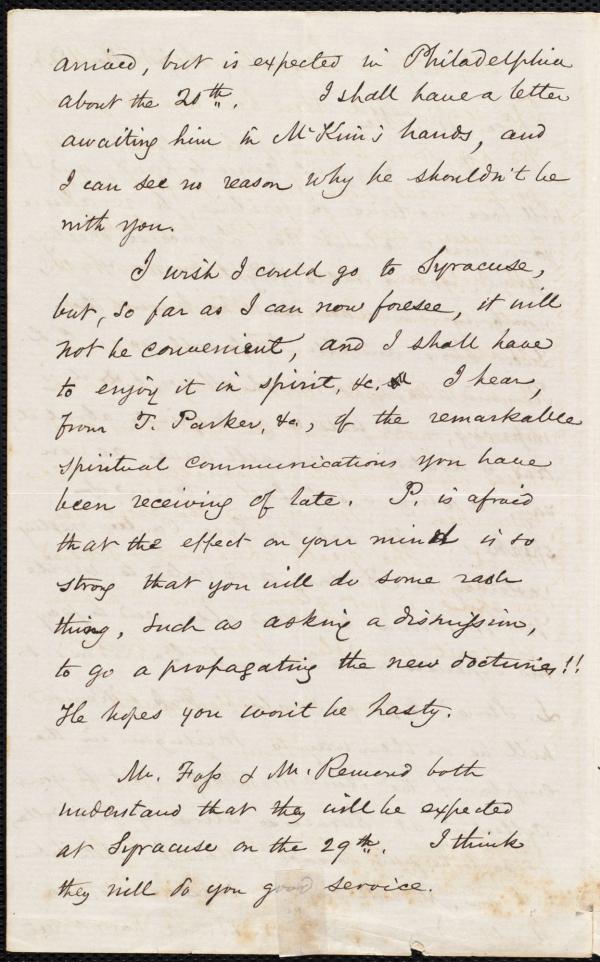 arrived, but is expected in Philadelphia
about the 20th. I shall have a letter
awaiting him in McKim's hands, and
I can see no reason why he shouldn't be
with you.
I wish I could go to Syracuse,
but, so far as I can now foresee, it will
not be convenient, and I shall have
to enjoy it in spirit, &c. I hear,
from T. Parker, &c., of the remarkable
spiritual communications you have
been receiving of late. P. is afraid
that the effect on your mind is so
strong that you will do some rash
thing, such as asking a dismission,
to go a propagating the new doctrines!!
He hopes you won't be hasty.
Mr. Foss & Mr. Remond both
understand that they will be expected
at Syracuse on the 29th. I think
they will do you good service.